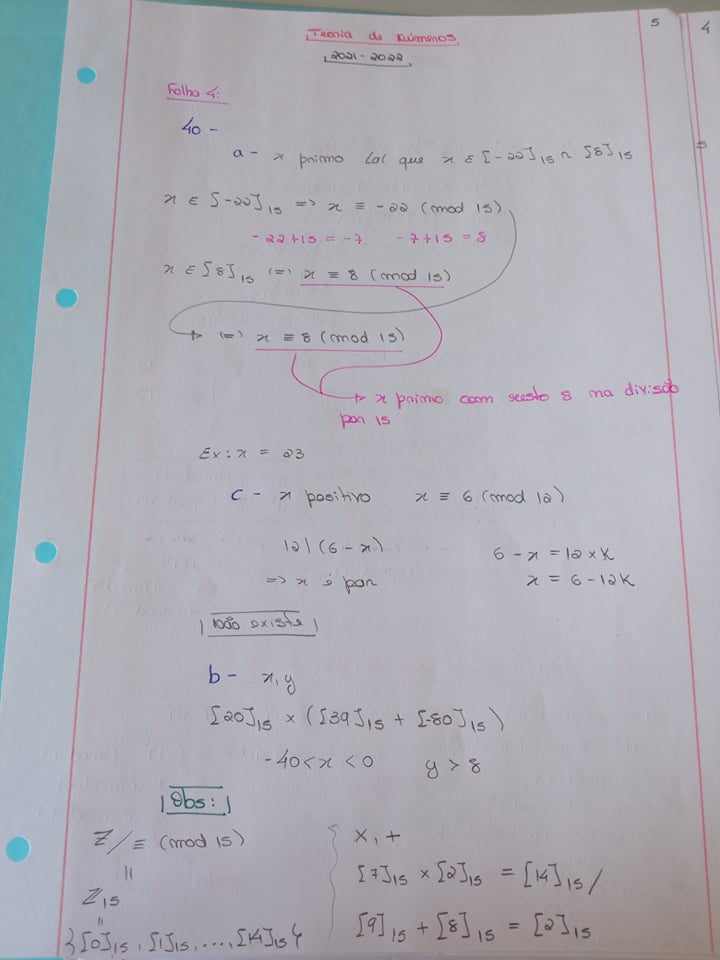 Teoria de Números
2021-2022
5
4
Folha 4:
40 -
a - x primo tal que x ∈ [-22]₁₅ ∩ [8]₁₅
x ∈ [-22]₁₅ => x ≡ -22 (mod 15)
-22+15 = -7 -7+15 = 8
x ∈ [8]₁₅ (=) x ≡ 8 (mod 15)
(=) x ≡ 8 (mod 15)
x primo com resto 8 na divisão
por 15
Ex: x = 23
c - x positivo x ≡ 6 (mod 12)
12|(6-x) 6-x = 12×K
=> x é par x = 6-12K
Não existe
b - x, y
[20]₁₅ × ([39]₁₅ + [-80]₁₅)
-40<x<0 y>8
Obs:
Z/≡ (mod 15) x, +
=
[7]₁₅ × [2]₁₅ = [14]₁₅ /
Z₁₅
=
{[0]₁₅, [1]₁₅, ..., [14]₁₅} [9]₁₅ + [8]₁₅ = [2]₁₅